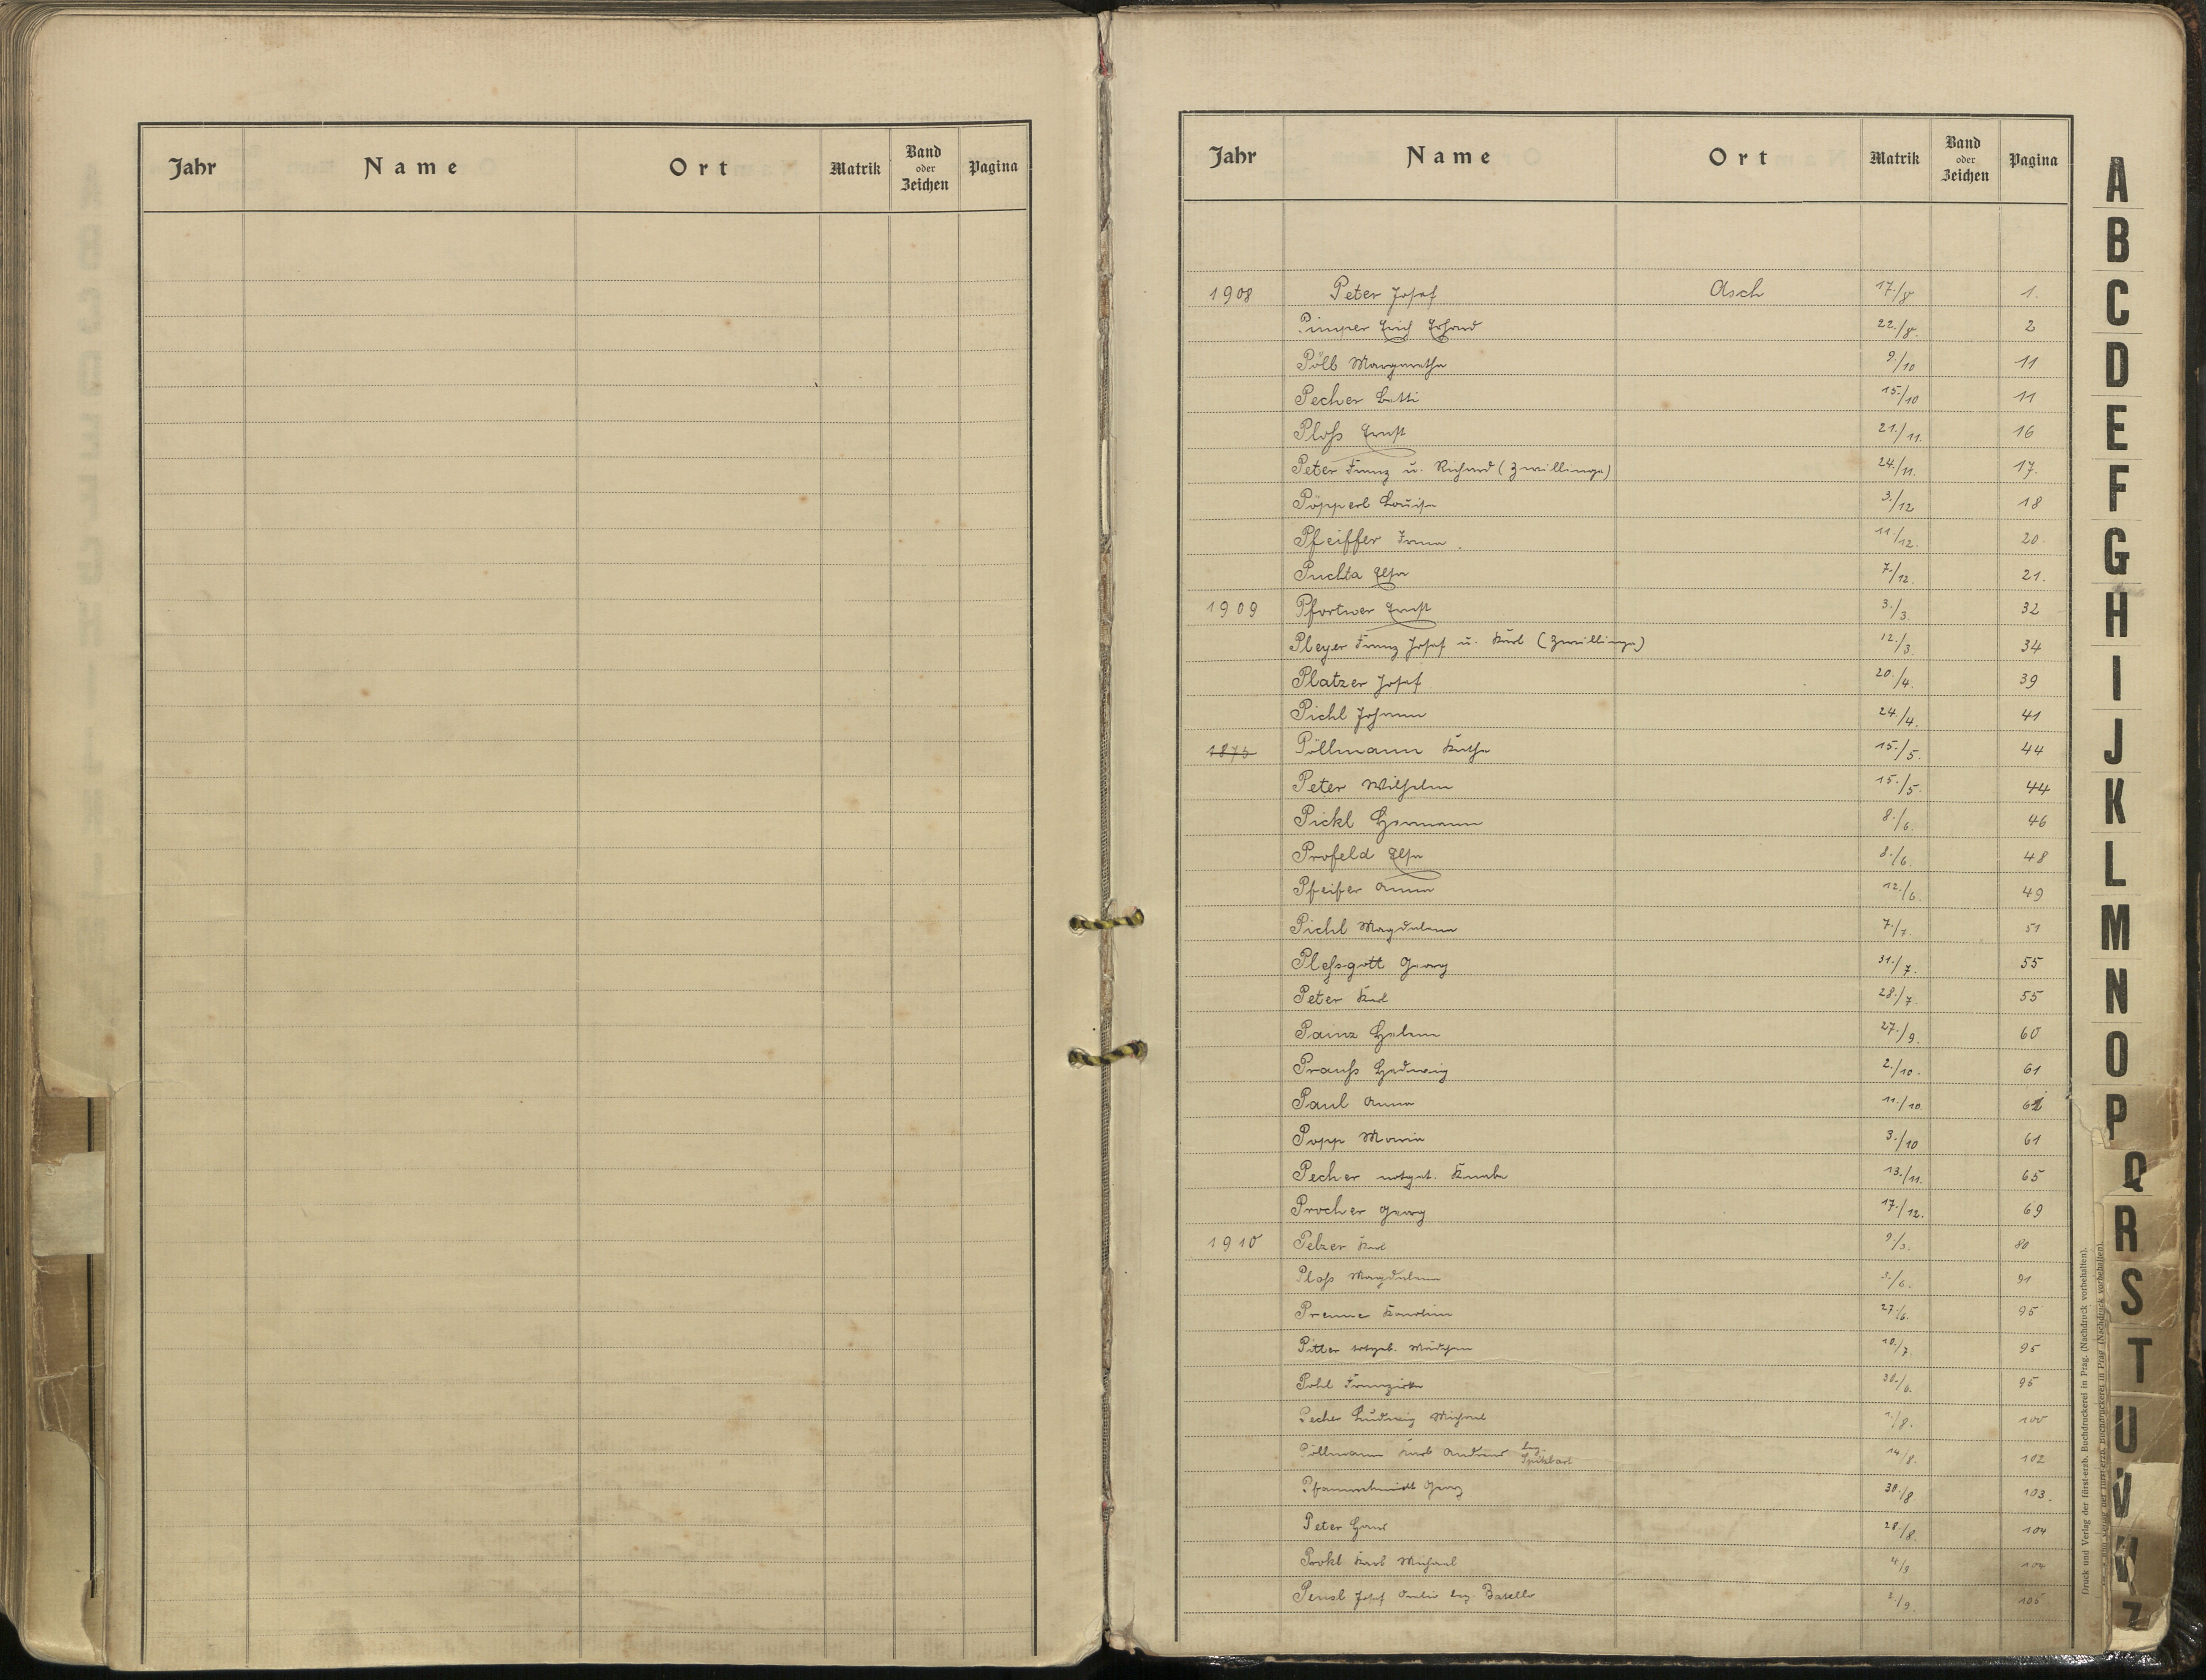 Jahr Name Ort Matrik Band oder Zeichen Pagina
Jahr Name Ort Matrik Band oder Zeichen Pagina
1908 Peter Josef Asch 17./8 1.
Pimper Erich Erhard 22./8. 2
Pöll Margaretha 9./10 11
Pecher Betti 15./10 11
Ploß Ernst 21./11. 16
Peter Franz u. Richard (Zwillinge) 24./11. 17.
Pöpperl Louise 3./12 18
Pfeiffer Irma 11./12. 20
Puchta Elsa 7./12. 21.
1909 Pfortner Ernst 3./3. 32
Pleyer Franz Josef u. Karl (Zwillinge) 12./3. 34
Platzer Josef 20./4. 39
Pichl Johann 24./4. 41
Pöllmann Käthe 15./5. 44
Peter Wilhelm 15./5. 44
Pickl Hermann 8./6. 46
Profeld Elsa 8./6. 48
Pfeifer Anna 12./6. 49
Pichl Magdalena 7./7. 51
Pleßgott Georg 31./7. 55
Peter Karl 28./7. 55
Painz Helena 27./9. 60
Prauß Hedwig 2./10. 61
Paul Anna 11./10.
Popp Maria 3./10 61
Pecher notget. Knabe 13./11. 65
Procher Georg 17./12. 69
1910 Pelzer Karl 9./3. 80
Ploß Magdalena 3./6. 91
Preme Karolina 27./6. 95
Pitter totgeb. Mädchen 10./7. 95
Pohl Franziska 30./6. 95
Pecher Ludwig Michael 1./8. 100
Pöllmann Karl Andreas leg. Spitzbart 14/8. 102
Pfannschmidt Georg 30./8 103.
Peter Hans 28./8. 104
Prokl Karl Michael 4./9 104
Pensl Josef leg. 2./9. 105
A
B
C
D
E
F
G
H
I
J
K
L
M
N
O
P
Q
R
S
T
U
V
W
Z
Druck und Verlag der fürst-erzb. Buchdruckerei in Prag. (Nachdruck vorbehalten).